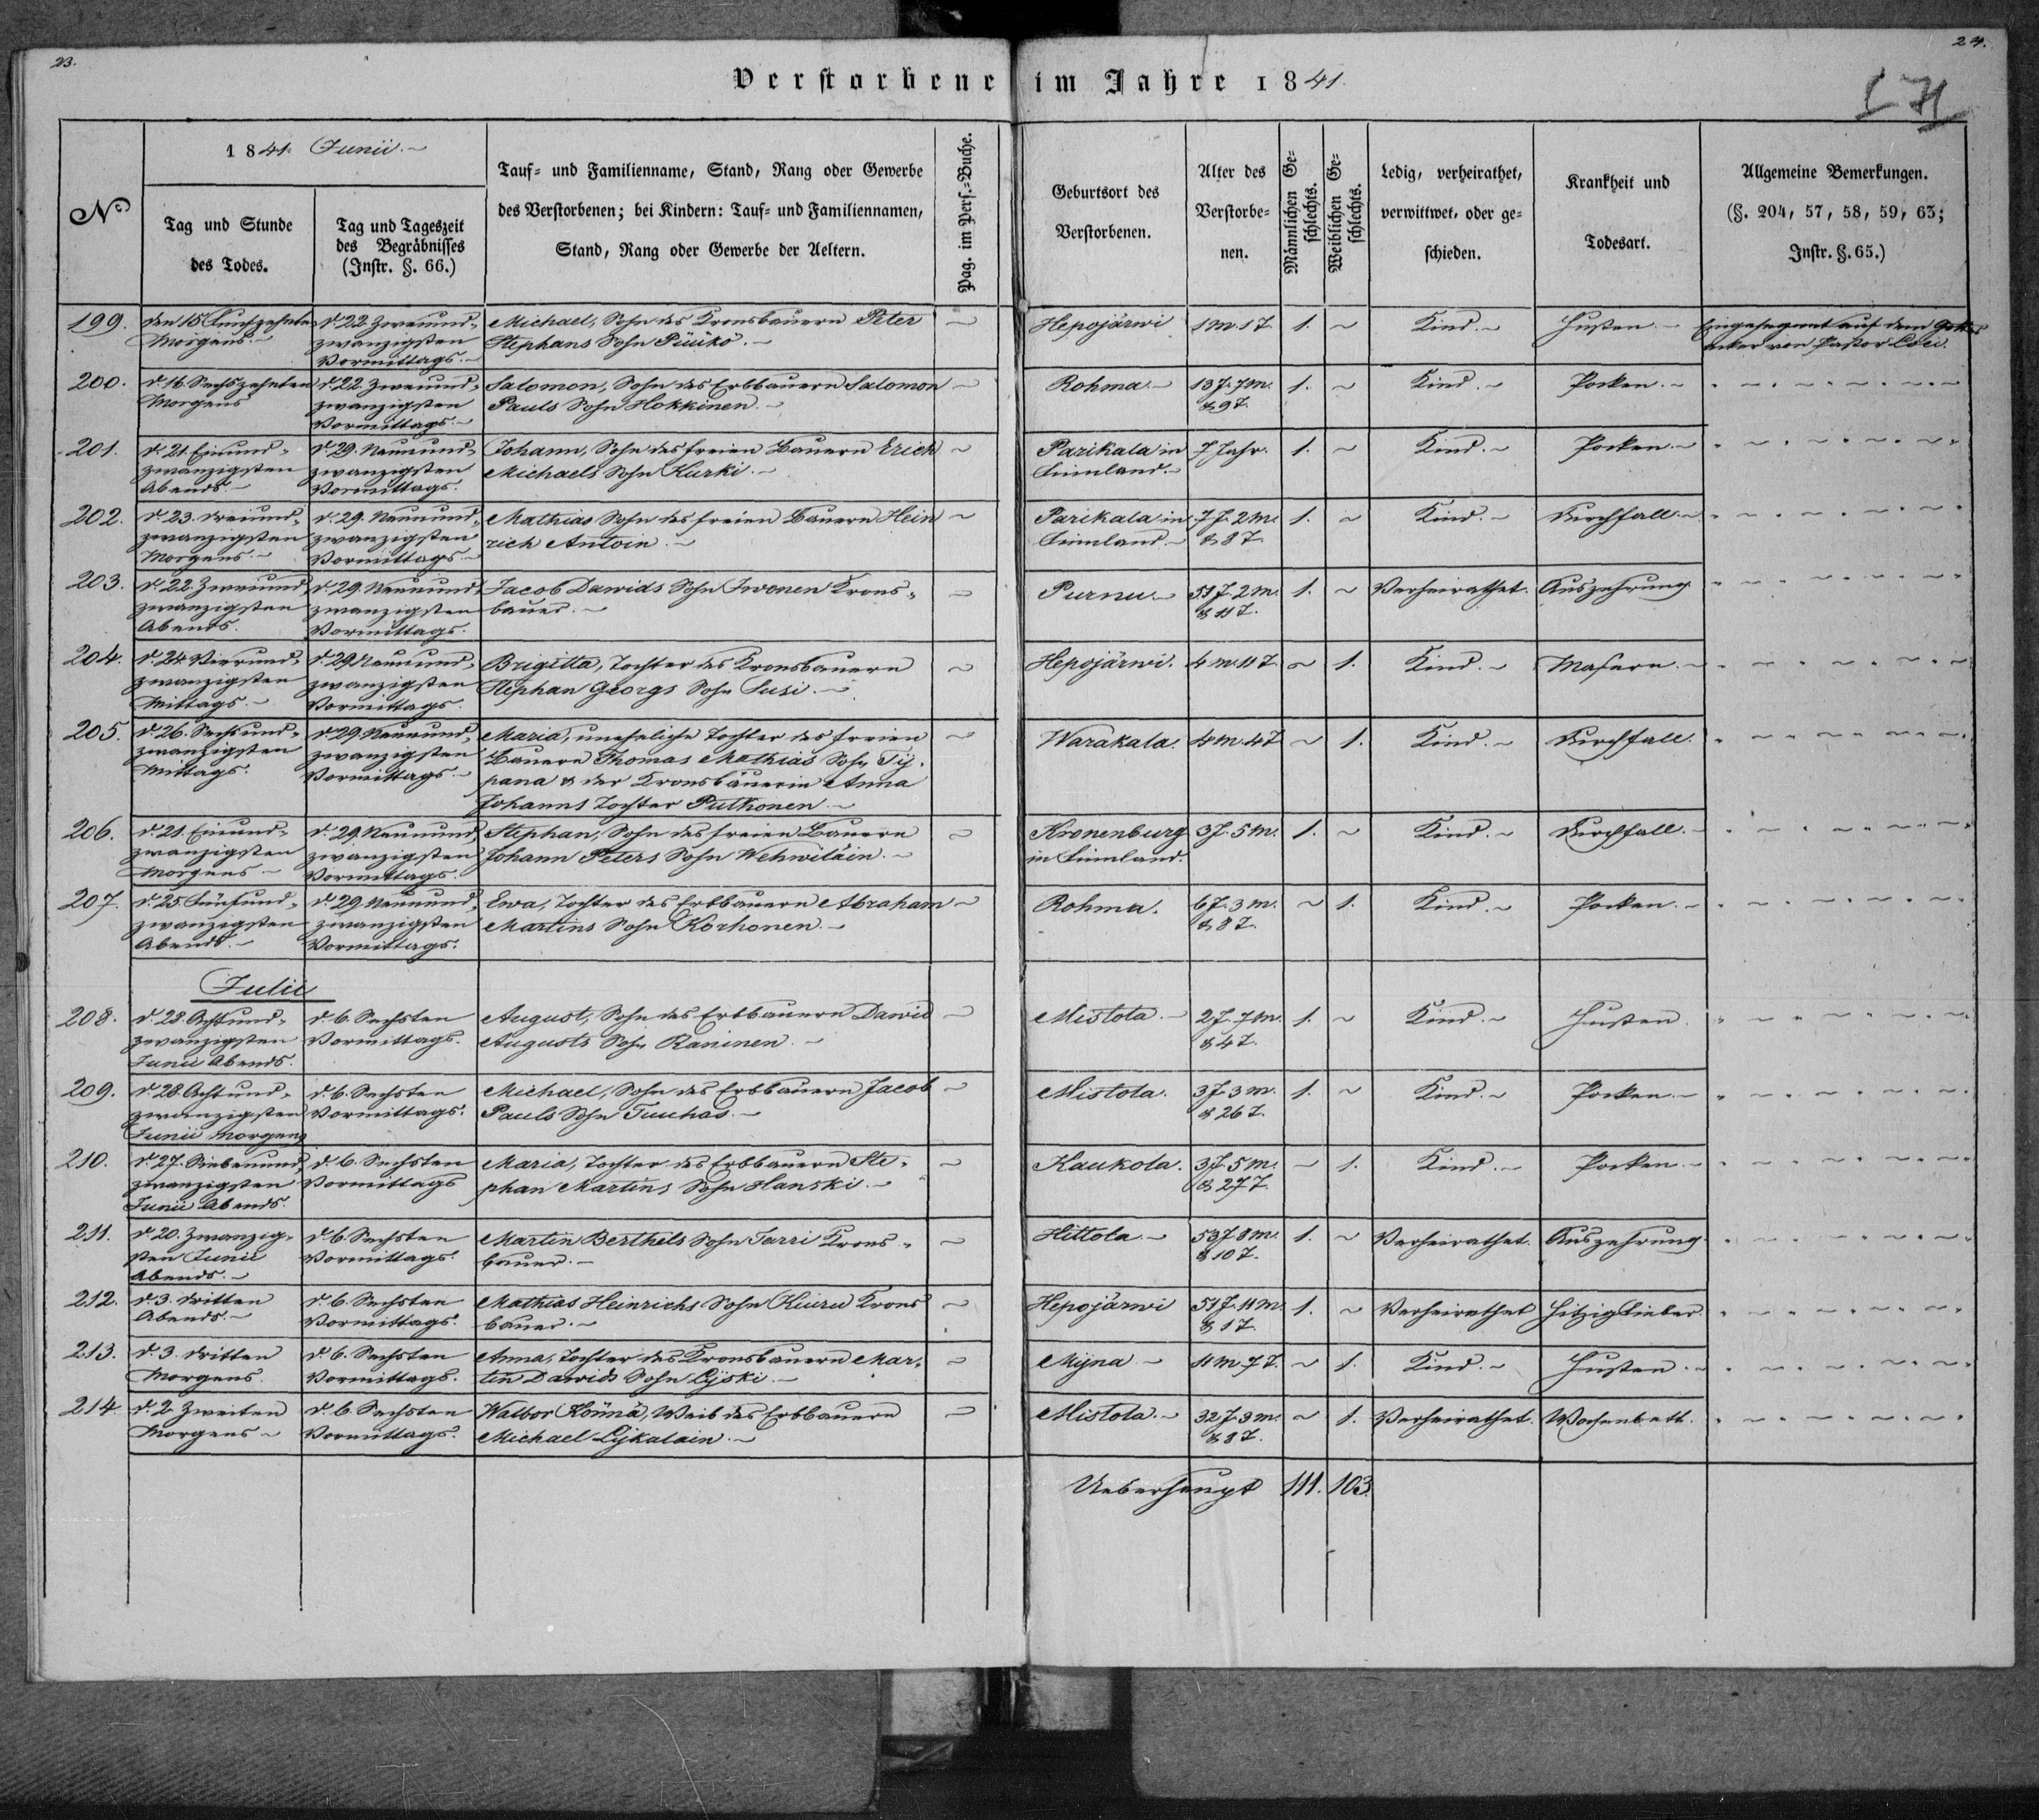 23.
24.
Verstorbene im Jahre 1841.
171
N°
1841. Junii.
Tag und Stunde
des Todes.
Tag und Tageszeit
des Begräbnisses
(Instr. §. 66.)
Tauf- und Familienname, Stand, Rang oder Gewerbe
des Verstorbenen; bei Kindern: Tauf- und Familiennamen,
Stand, Rang oder Gewerbe der Aeltern.
Pag. im Pers.-Buche.
Geburtsort des
Verstorbenen.
Alter des
Verstorbe-
nen.
Männlichen Ge-
schlechts.
Weiblichen Ge-
schlechts.
Ledig, verheirathet,
verwittwet, oder ge-
schieden.
Krankheit und
Todesart.
Allgemeine Bemerkungen.
(§. 204, 57, 58, 59, 63;
Instr. §. 65.)
199.
den 15 Funfzehnten
Morgens.
d. 22 Zweiund-
zwanzigsten
Vormittags.
Michael, Sohn des Kronsbauern Peter
Stephans Sohn Püükö.
Hepojärwi
1 M. 1 T.
1.
Kind.
Husten.
Eingesegnet auf dem Gottes
acker von Pastor
200.
d. 16 Sechszehnten
Morgens
d. 22. Zweiund-
zwanzigsten
Vormittags.
Salomon, Sohn des Erbbauern Salomon
Pauls Sohn Hokkinen.
Rohma.
13 J. 7 M.
& 9 T.
1.
Kind.
Pocken.
201.
d. 21. Einund-
zwanzigsten
Abends.
d. 29. Neunund-
zwanzigsten
Vormittags.
Johann, Sohn des freien Bauern Erich
Michaels Sohn Kurki.
Parikala in
Finnland.
7 Jahr.
1.
Kind.
Pocken.
202.
d. 23. Dreiund-
zwanzigsten
Morgens.
d. 29. Neunund-
zwanzigsten
Vormittags.
Mathias Sohn des freien Bauern Hein
rich Antoin.
Parikala in
Finnland.
7 J. 2 M.
& 8 T.
1.
Kind.
Durchfall.
203.
d. 22. Zweiund-
zwanzigsten
Abends.
d. 29. Neunund-
zwanzigsten
Vormittags.
Jacob Dawids Sohn Iwonen Krons-
bauer.
Purnu.
51 J. 2 M.
& 11 T.
1.
Verheirathet.
Auszehrung.
204.
d. 24 Vierund-
zwanzigsten
Mittags.
d. 29 Neunund-
zwanzigsten
Vormittags.
Brigitta, Tochter des Kronsbauern
Stephan Georgs Sohn Susi.
Hepojärwi.
4 M. 11 T.
1.
Kind.
Masern.
205.
d. 26. Sechsund-
zwanzigsten
Mittags.
d. 29. Neunund-
zwanzigsten
Vormittags.
Maria, uneheliche Tochter des freien
Bauern Thomas Mathias Sohn Tij-
pana & der Kronsbäuerin Anna
Johanns Tochter Putkonen.
Warakala.
4 M. 4 T.
1.
Kind.
Durchfall.
206.
d. 21. Einund-
zwanzigsten
Morgens.
d. 29. Neunund-
zwanzigsten
Vormittags.
Stephan, Sohn des freien Bauern
Johann Peters Sohn Wehwiläin.
Kronenburg
in Finnland.
3 J. 5 M.
1.
Kind.
Durchfall.
207.
d. 25. Fünfund-
zwanzigsten
Abends.
d. 29. Neunund-
zwanzigsten
Vormittags.
Ewa, Tochter des Erbbauern Abraham
Martins Sohn Korhonen.
Rohma.
6 J. 3 M.
& 8 T.
1.
Kind.
Pocken.
Julii
208.
d. 28. Achtund-
zwanzigsten
Junii Abends.
d. 6. Sechsten
Vormittags.
August, Sohn des Erbbauern Dawid
Augusts Sohn Raninen.
Mistola.
2 J. 7 M.
& 4 T.
1.
Kind.
Husten.
209.
d. 28. Achtund-
zwanzigsten
Junii Morgens
d. 6. Sechsten
Vormittags.
Michael, Sohn des Erbbauern Jacob
Pauls Sohn Tuuhas.
Mistola.
3 J. 3 M.
& 26 T.
1.
Kind.
Pocken.
210.
d. 27. Siebenund-
zwanzigsten
Junii Abends.
d. 6. Sechsten
Vormittags
Maria, Tochter des Erbbauern Ste-
phan Martins Sohn Hanski.
Kaukola.
3 J. 5 M.
& 27 T.
1.
Kind.
Pocken.
211.
d. 20. Zwanzig-
sten Junii
Abends.
d. 6. Sechsten
Vormittags.
Martin Berthils Sohn Tarri Krons-
bauer.
Hittola.
53 J. 8 M.
& 10 T.
1.
Verheirathet.
Auszehrung
212.
d. 3. dritten
Abends.
d. 6. Sechsten
Vormittags.
Mathias Heinrichs Sohn Kiuru Krons
bauer.
Hepojärwi
51 J. 11 M.
& 1 T.
1.
Verheirathet
Hitzig Fieber.
213.
d. 3. dritten
Morgens.
d. 6. Sechsten
Vormittags.
Anna, Tochter des Kronsbauern Mar-
tin Dawids Sohn Lijski.
Mijna
11 M. 7 T.
1.
Kind.
Husten.
214.
d. 2. Zweiten
Morgens
d. 6. Sechsten
Vormittags.
Walbor Könnä, Weib des Erbbauern
Michael Lijkalain.
Mistola.
32 J. 3 M.
& 8 T.
1.
Verheirathet.
Wochenbett.
Ueberhaupt
111.
103.